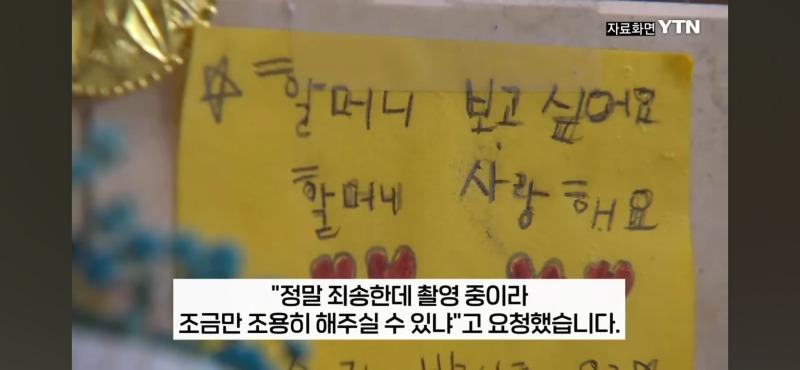 자료화면 YTN
☆ 할머니 보고 싶어요
할머니 사랑해요
"정말 죄송한데 촬영 중이라
조금만 조용히 해주실 수 있냐"고 요청했습니다.